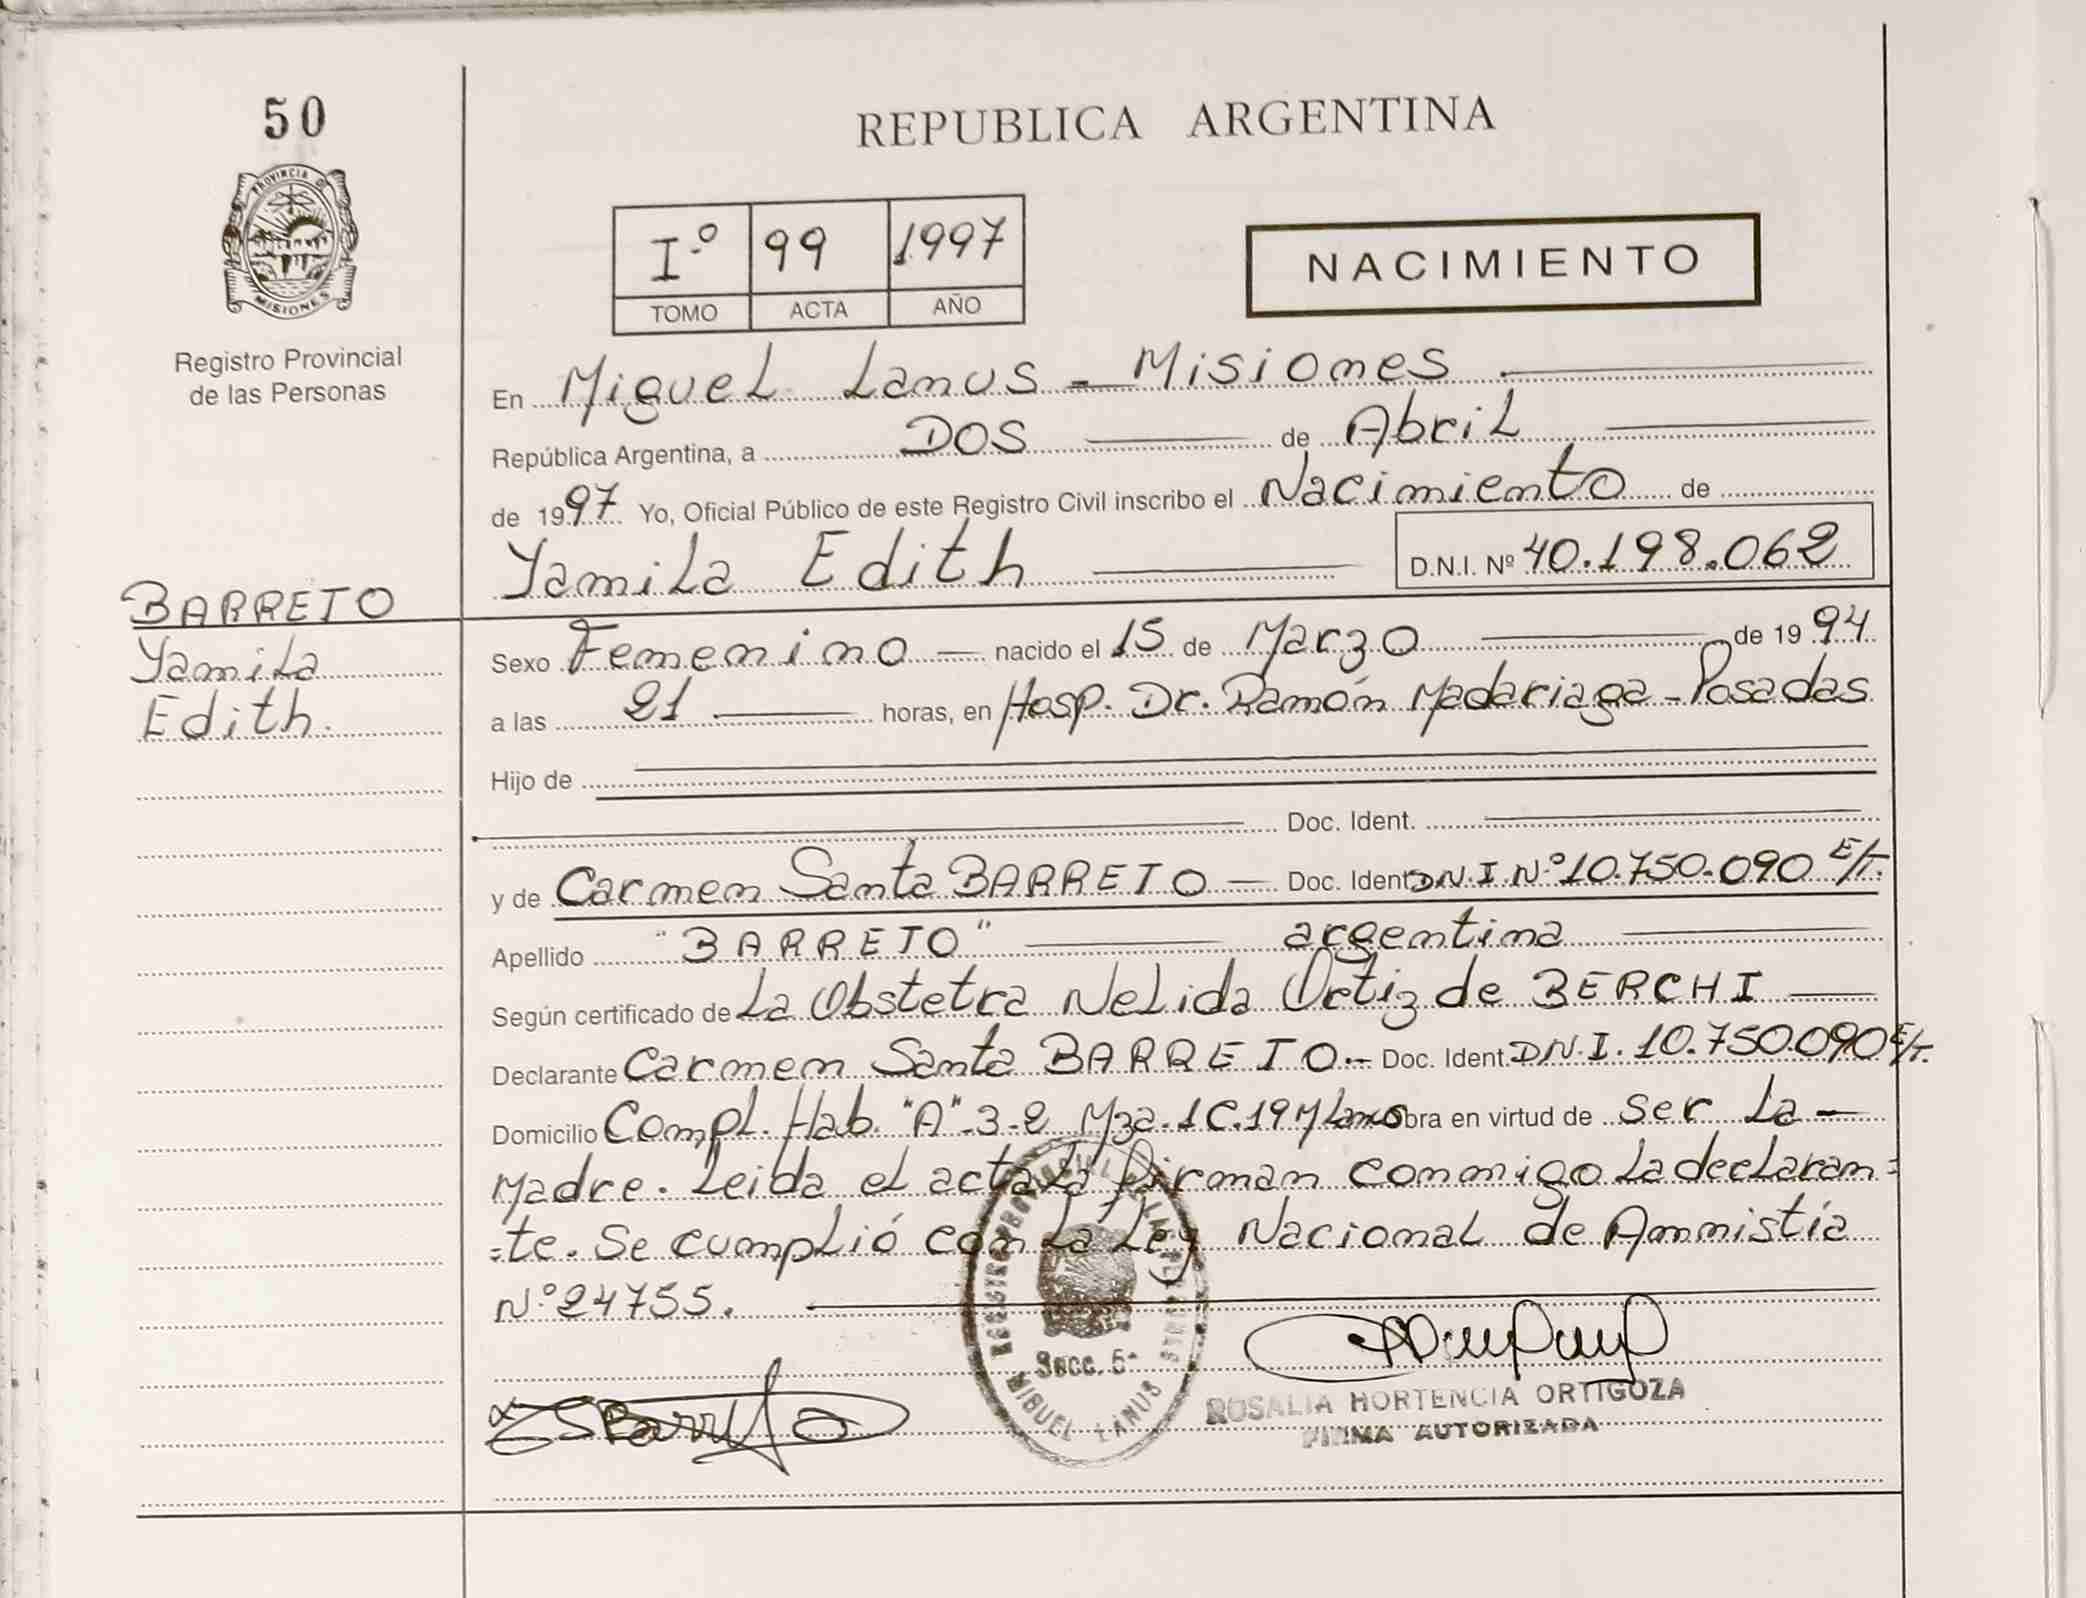 50
PROVINCIA DE
MISIONES
Registro Provincial
de las Personas
BARRETO
Yamila
Edith.
REPUBLICA ARGENTINA
Iº 99 1997
TOMO ACTA AÑO
NACIMIENTO
En Miguel Lanus - Misiones
República Argentina, a DOS de Abril
de 1997 Yo, Oficial Público de este Registro Civil inscribo el Nacimiento de
Yamila Edith D.N.I. Nº 40.198.062
Sexo Femenino nacido el 15 de Marzo de 1994
a las 21 horas, en Hosp. Dr. Ramón Madariaga - Posadas
Hijo de
Doc. Ident.
y de Carmen Santa BARRETO Doc. Ident. D.N.I Nº 10.750.090 E/T.
Apellido "BARRETO" argentina
Según certificado de La Obstetra Nelida Ortiz de BERCHI
Declarante Carmen Santa BARRETO.- Doc. Ident. D.N.I. 10.750.090 E/T.
Domicilio Compl. Hab. "A"-3-2 Mza. 1 C.19 M Lanus obra en virtud de ser la -
Madre. Leida el acta la firman conmigo la declaran=
=te. Se cumplió con la Ley Nacional de Amnistía
Nº 24755.
REGISTRO PROVINCIAL DE LAS PERSONAS
Secc. 5ª
MIGUEL LANUS
ROSALIA HORTENCIA ORTIGOZA
FIRMA AUTORIZADA